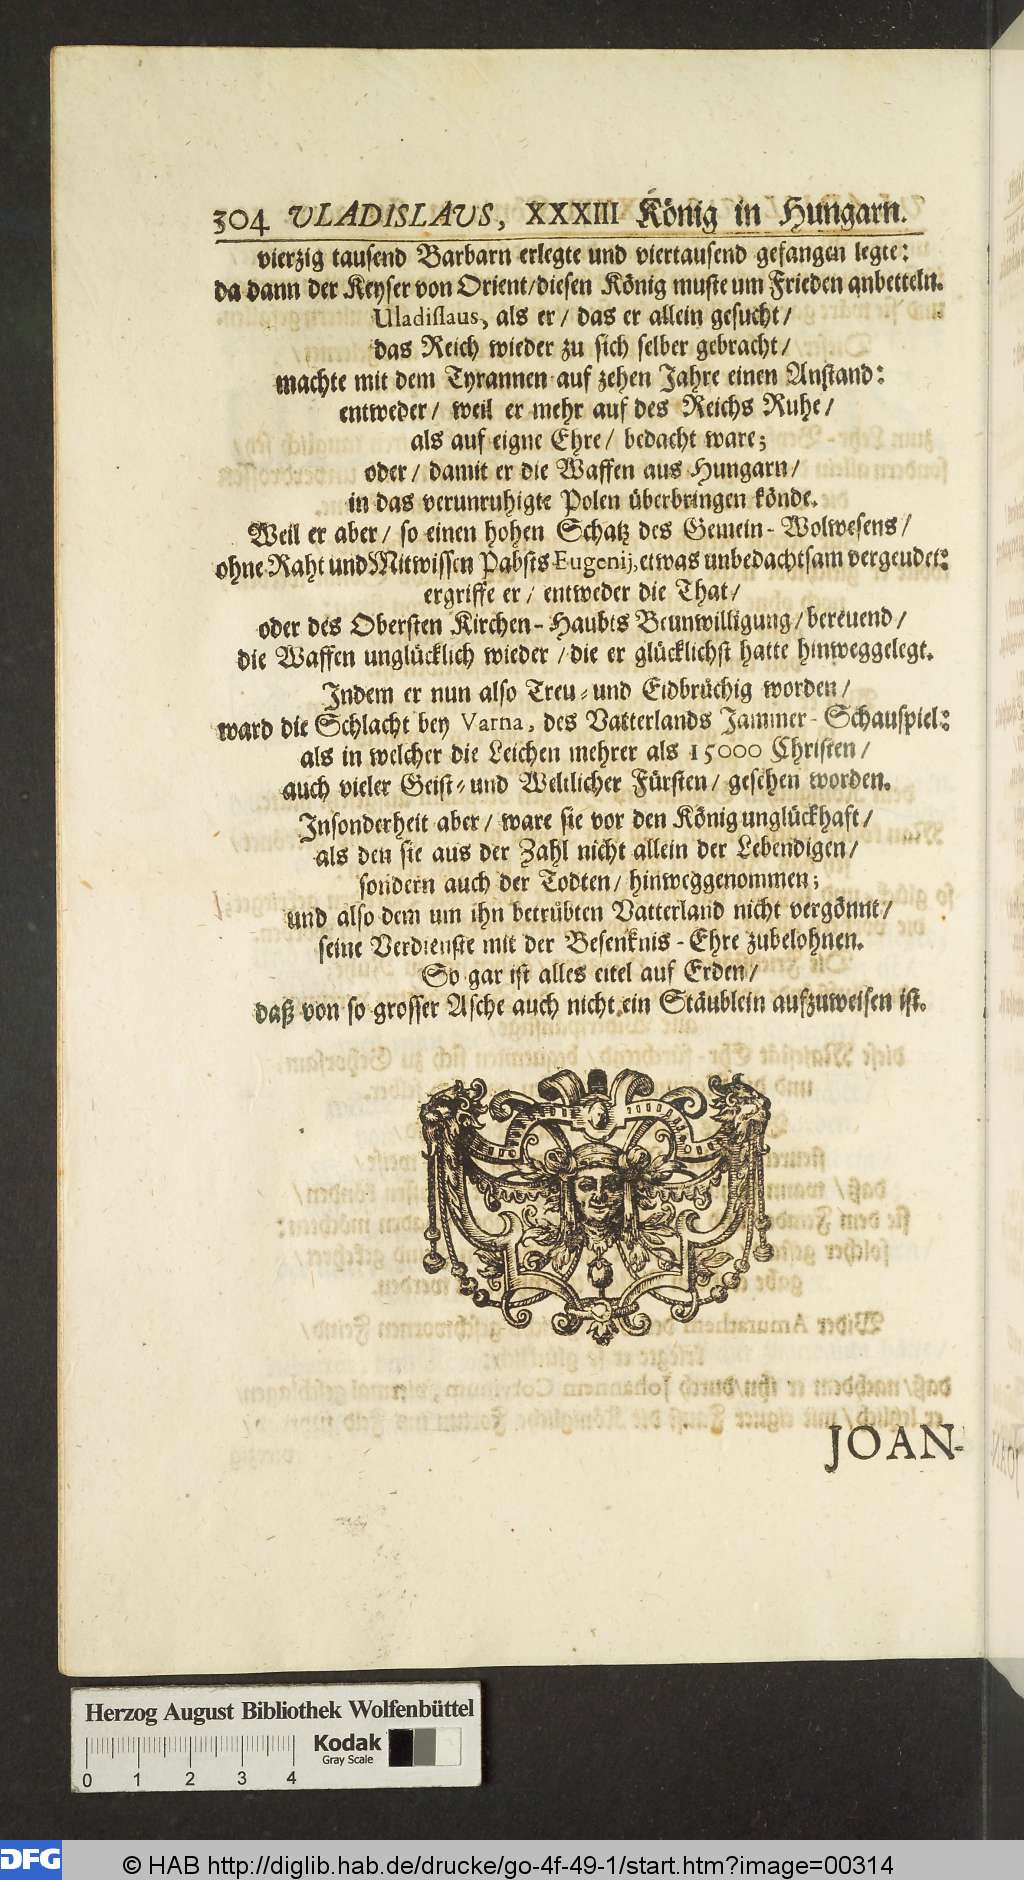 304 VLADISLAVS, XXXIII König in Hungarn.
vierzig tausend Barbarn erlegte und viertausend gefangen legte:
da dann der Keyser von Orient/diesen König muste um Frieden anbetteln.
Uladislaus, als er/ das er allein gesucht/
das Reich wieder zu sich selber gebracht/
machte mit dem Tyrannen auf zehen Jahre einen Anstand:
entweder/ weil er mehr auf des Reichs Ruhe/
als auf eigne Ehre/ bedacht ware;
oder/ damit er die Waffen aus Hungarn/
in das verunruhigte Polen überbringen könde.
Weil er aber/ so einen hohen Schatz des Gemein-Wolwesens/
ohne Raht und Mitwissen Pabsts Eugenij, etwas unbedachtsam vergeudet:
ergriffe er/ entweder die That/
oder des Obersten Kirchen-Haubts Beunwilligung/ bereuend/
die Waffen unglücklich wieder/ die er glücklichst hatte hinweggelegt.
Indem er nun also Treu- und Eidbrüchig worden/
ward die Schlacht bey Varna, des Vatterlands Jammer-Schauspiel:
als in welcher die Leichen mehrer als 15000 Christen/
auch vieler Geist- und Weltlicher Fürsten/ gesehen worden.
Insonderheit aber/ ware sie vor den König unglückhaft/
als den sie aus der Zahl nicht allein der Lebendigen/
sondern auch der Todten/ hinweggenommen;
und also dem um ihn betrübten Vatterland nicht vergönnt/
seine Verdienste mit der Besenknis-Ehre zubelohnen.
So gar ist alles eitel auf Erden/
daß von so grosser Asche auch nicht ein Stäublein aufzuweisen ist.
JOAN-
Herzog August Bibliothek Wolfenbüttel
Kodak
Gray Scale
0 1 2 3 4
DFG
© HAB http://diglib.hab.de/drucke/go-4f-49-1/start.htm?image=00314